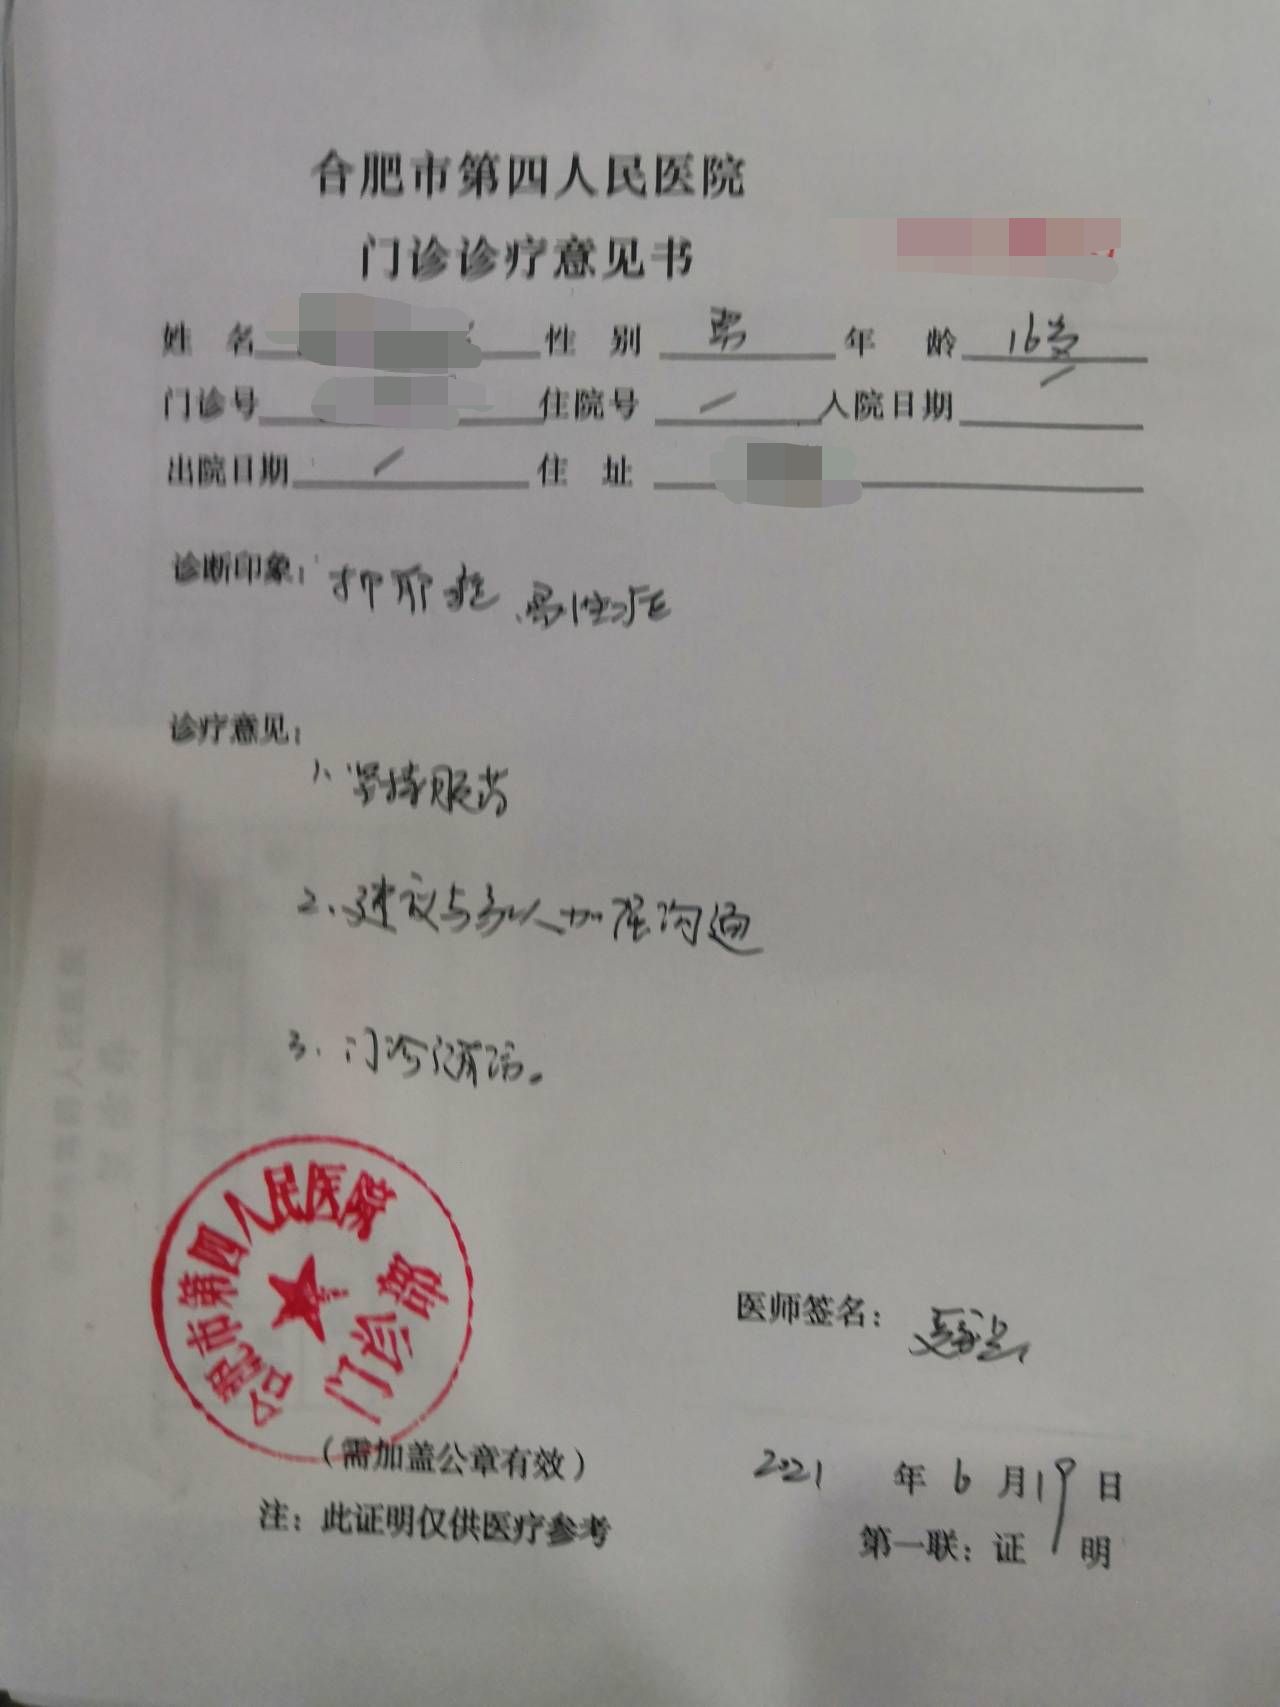 合肥市第四人民医院
门诊诊疗意见书
姓 名 性 别 男 年 龄 16岁
门诊号 住院号 / 入院日期 /
出院日期 / 住 址
诊断印象: 抑郁症、易性症
诊疗意见:
1、坚持服药
2、建议与家人加强沟通
3. 门诊随访。
合肥市第四人民医院
门诊部
医师签名:
(需加盖公章有效)
2021 年 6 月 19 日
注: 此证明仅供医疗参考
第一联: 证 明